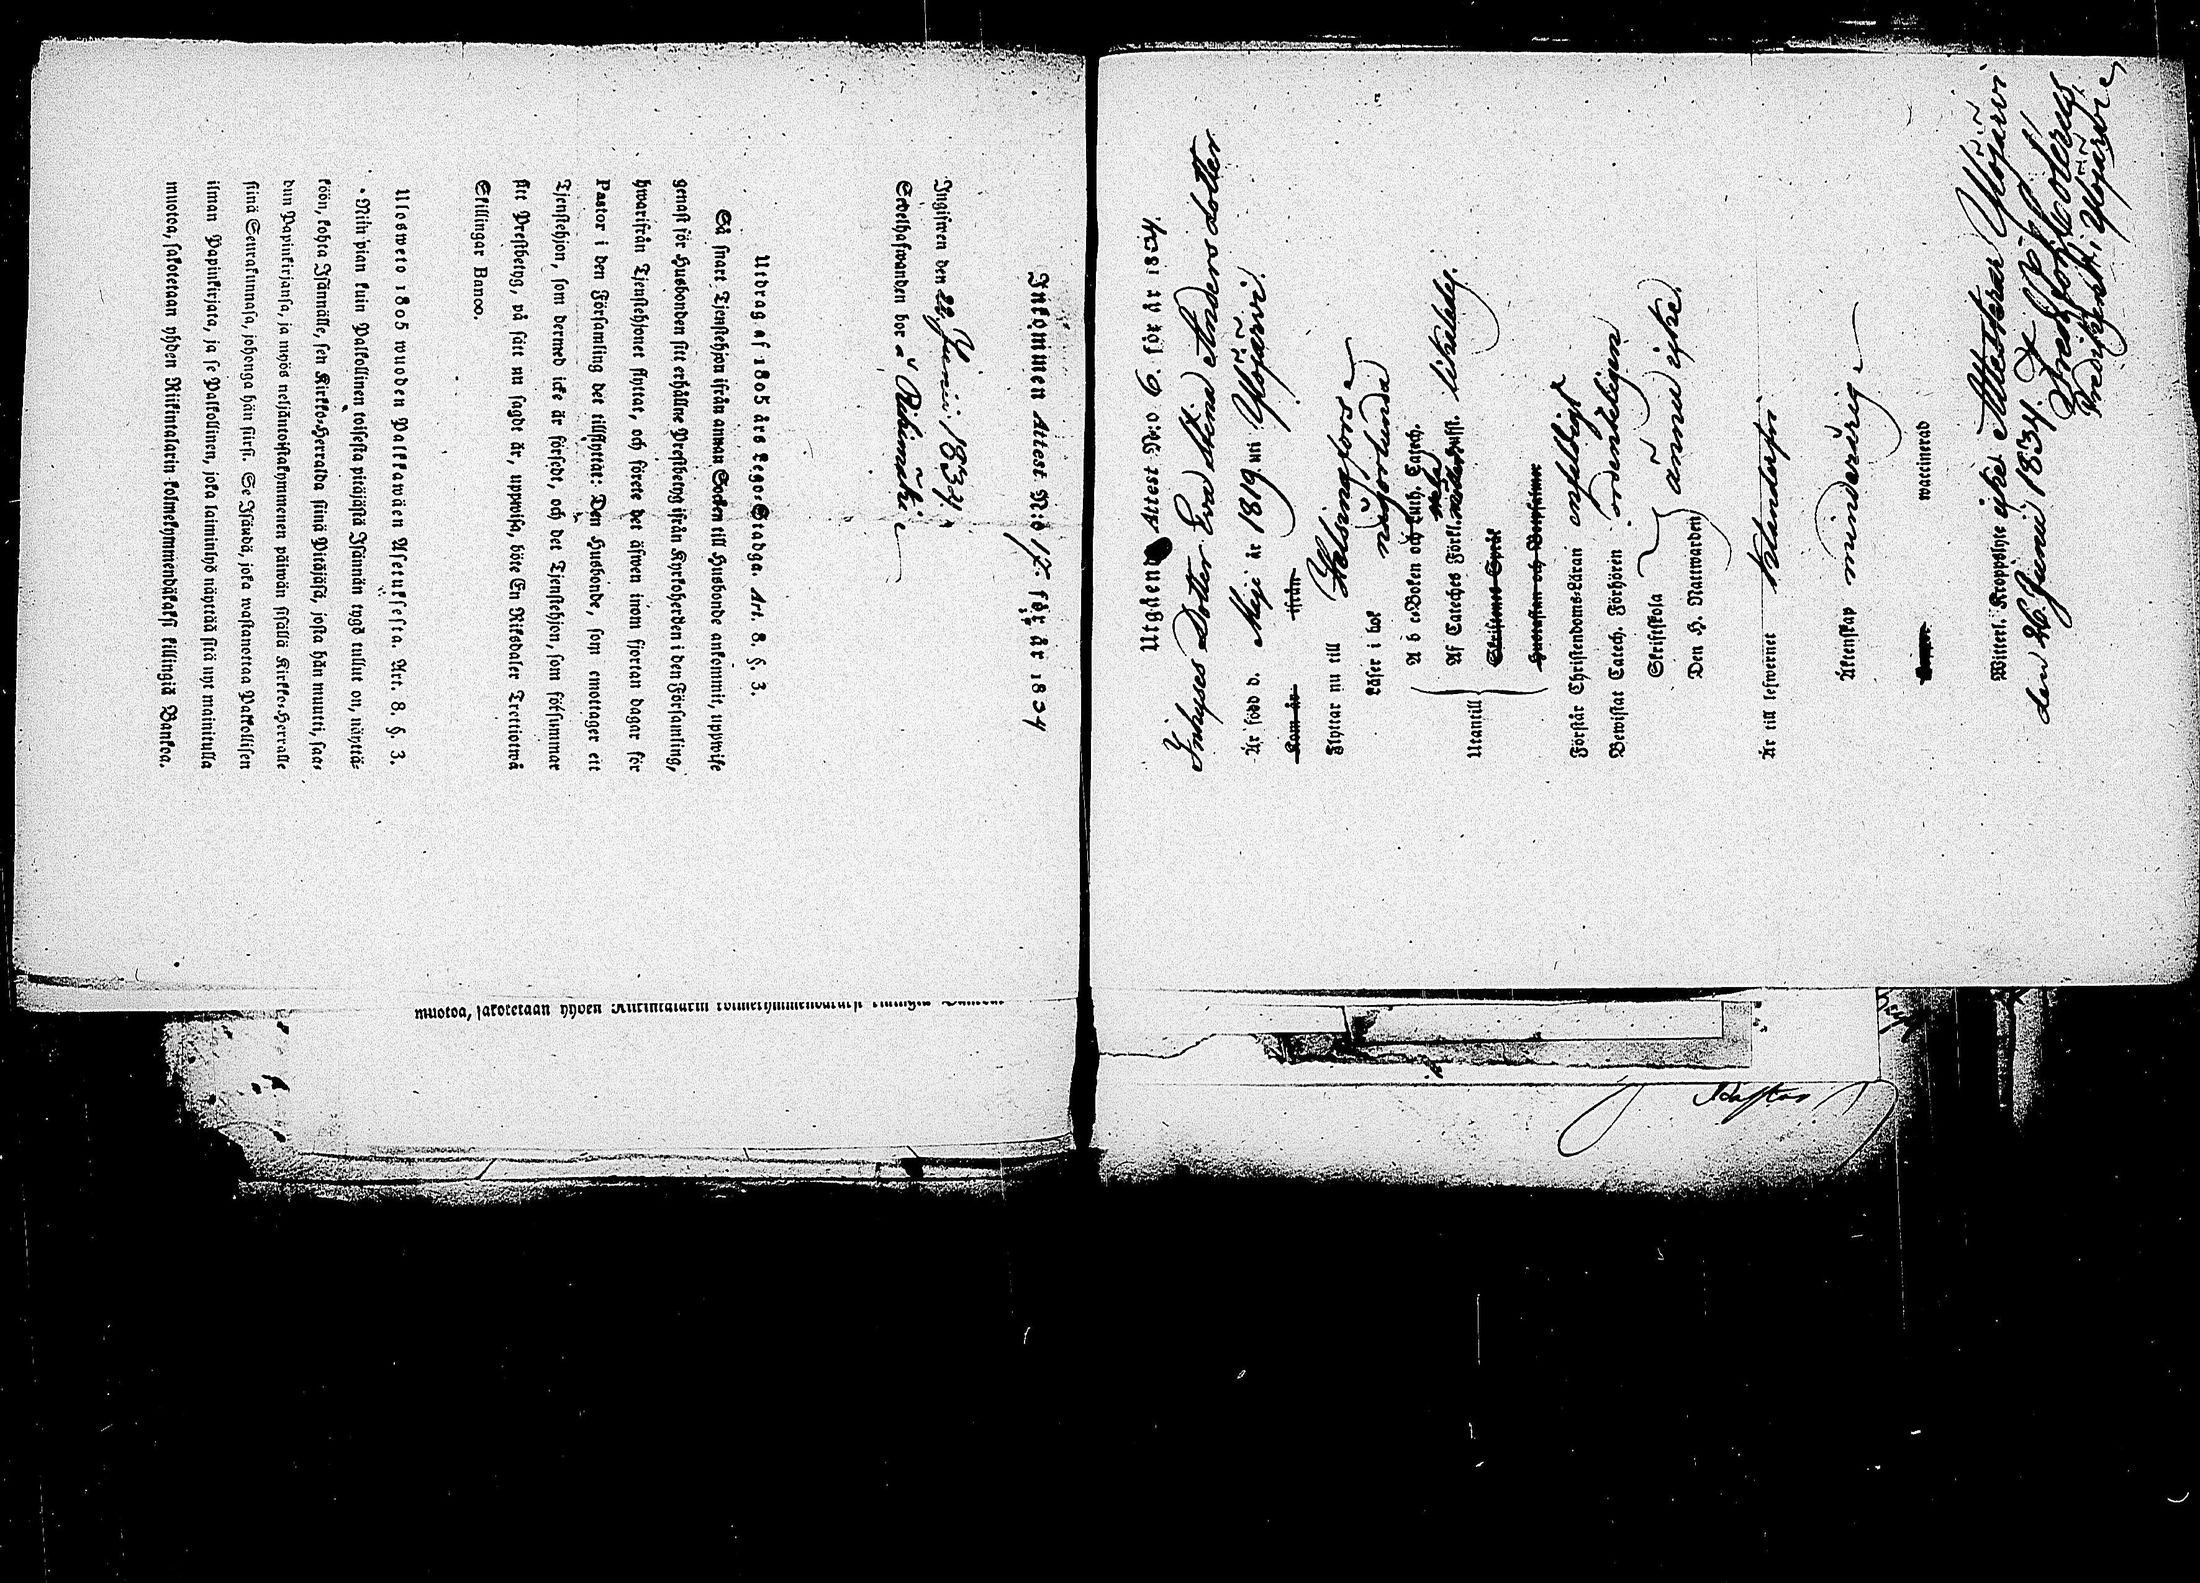 Inkommen Attest N:o 17. för år 1834
Ingifwen den 22 Junii 1834.
Sedelhafwanden bor å Rihimäki
Utdrag af 1805 års Lego-Stadga. Art. 8. §. 3.
Så snart Tjenstehjon ifrån annan Socken till Husbonde ankommit, uppwise
genast för Husbonden sitt erhållne Prestbetyg ifrån Kyrkoherden i den Församling,
hwarifrån Tjenstehjonet flyttat, och förete det äfwen inom fjorton dagar för
Pastor i den Församling det tillflyttat: Den Husbonde, som emottager ett
Tjenstehjon, som dermed icke är försedt, och det Tjenstehjon, som försummar
sitt Prestbetyg, på sätt nu sagdt är, uppwisa, böte En Riksdaler Trettiotwå
Skillingar Banco.
Ulosweto 1805 wuoden Palkkawäen Asetuksesta. Art. 8. §. 3.
Niin pian kuin Palkollinen toisesta pitäjästä Isännän tygö tullut on, näyttä-
köön, kohta Isännälle, sen Kirkko-Herralda siinä Pitäjäsä, josta hän muutti, saa-
dun Papinkirjansa, ja myös neljäntoistakymmenen päiwän sisällä Kirkko-Herralle
siinä Seurakunnasa, johonga hän siirsi. Se Isändä, joka wastanottaa Palkollisen
ilman Papinkirjata, ja se Palkollinen, joka laiminlyö näyttää sitä nyt mainitulla
muotoa, sakotetaan yhden Riikintalarin kolmekymmendäkaksi killingiä Bankoa.
muotoa, sakotetaan yhden Riikintalarin kolmekymmendäkaksi killingiä Bankoa.
Utgående Attest N:o 6. för år 1834.
Inhyses Dotter Eva Stina Andersdotter
Är född d. Maji år 1819 uti Ylöjärvi.
Kom år ifrån
Flyttar nu till Helsingfors
Läser i bok någorlunda
A b c-Boken och Luth. Catech.
Utantill Af Cateches Förkl. hela likaledes.
Skriftenes Språk
Hustaflan och
Förstår Christendoms-Läran enfaldigt
Bewistat Catech. Förhören ordenteligen
Skriftskola
Den H. Nattwarden ännu icke.
Är till lefwernet klanderfri
Äktenskap minderårig
waccinerad
Witterl. Kroppslyte icke Attesterar Ylöjärvi
den 26 Junii 1834.
Predikant i Ylöjärvi